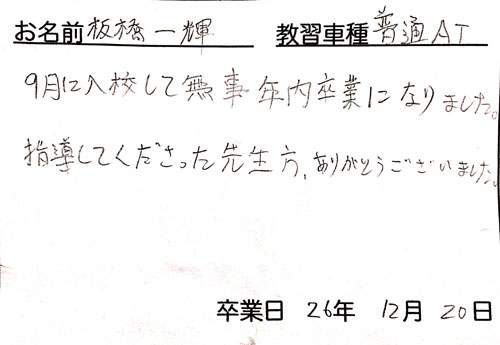 お名前 板橋一輝 教習車種 普通AT
9月に入校して無事年内卒業になりました。
指導してくださった先生方、ありがとうございました。
卒業日 26年 12月 20日